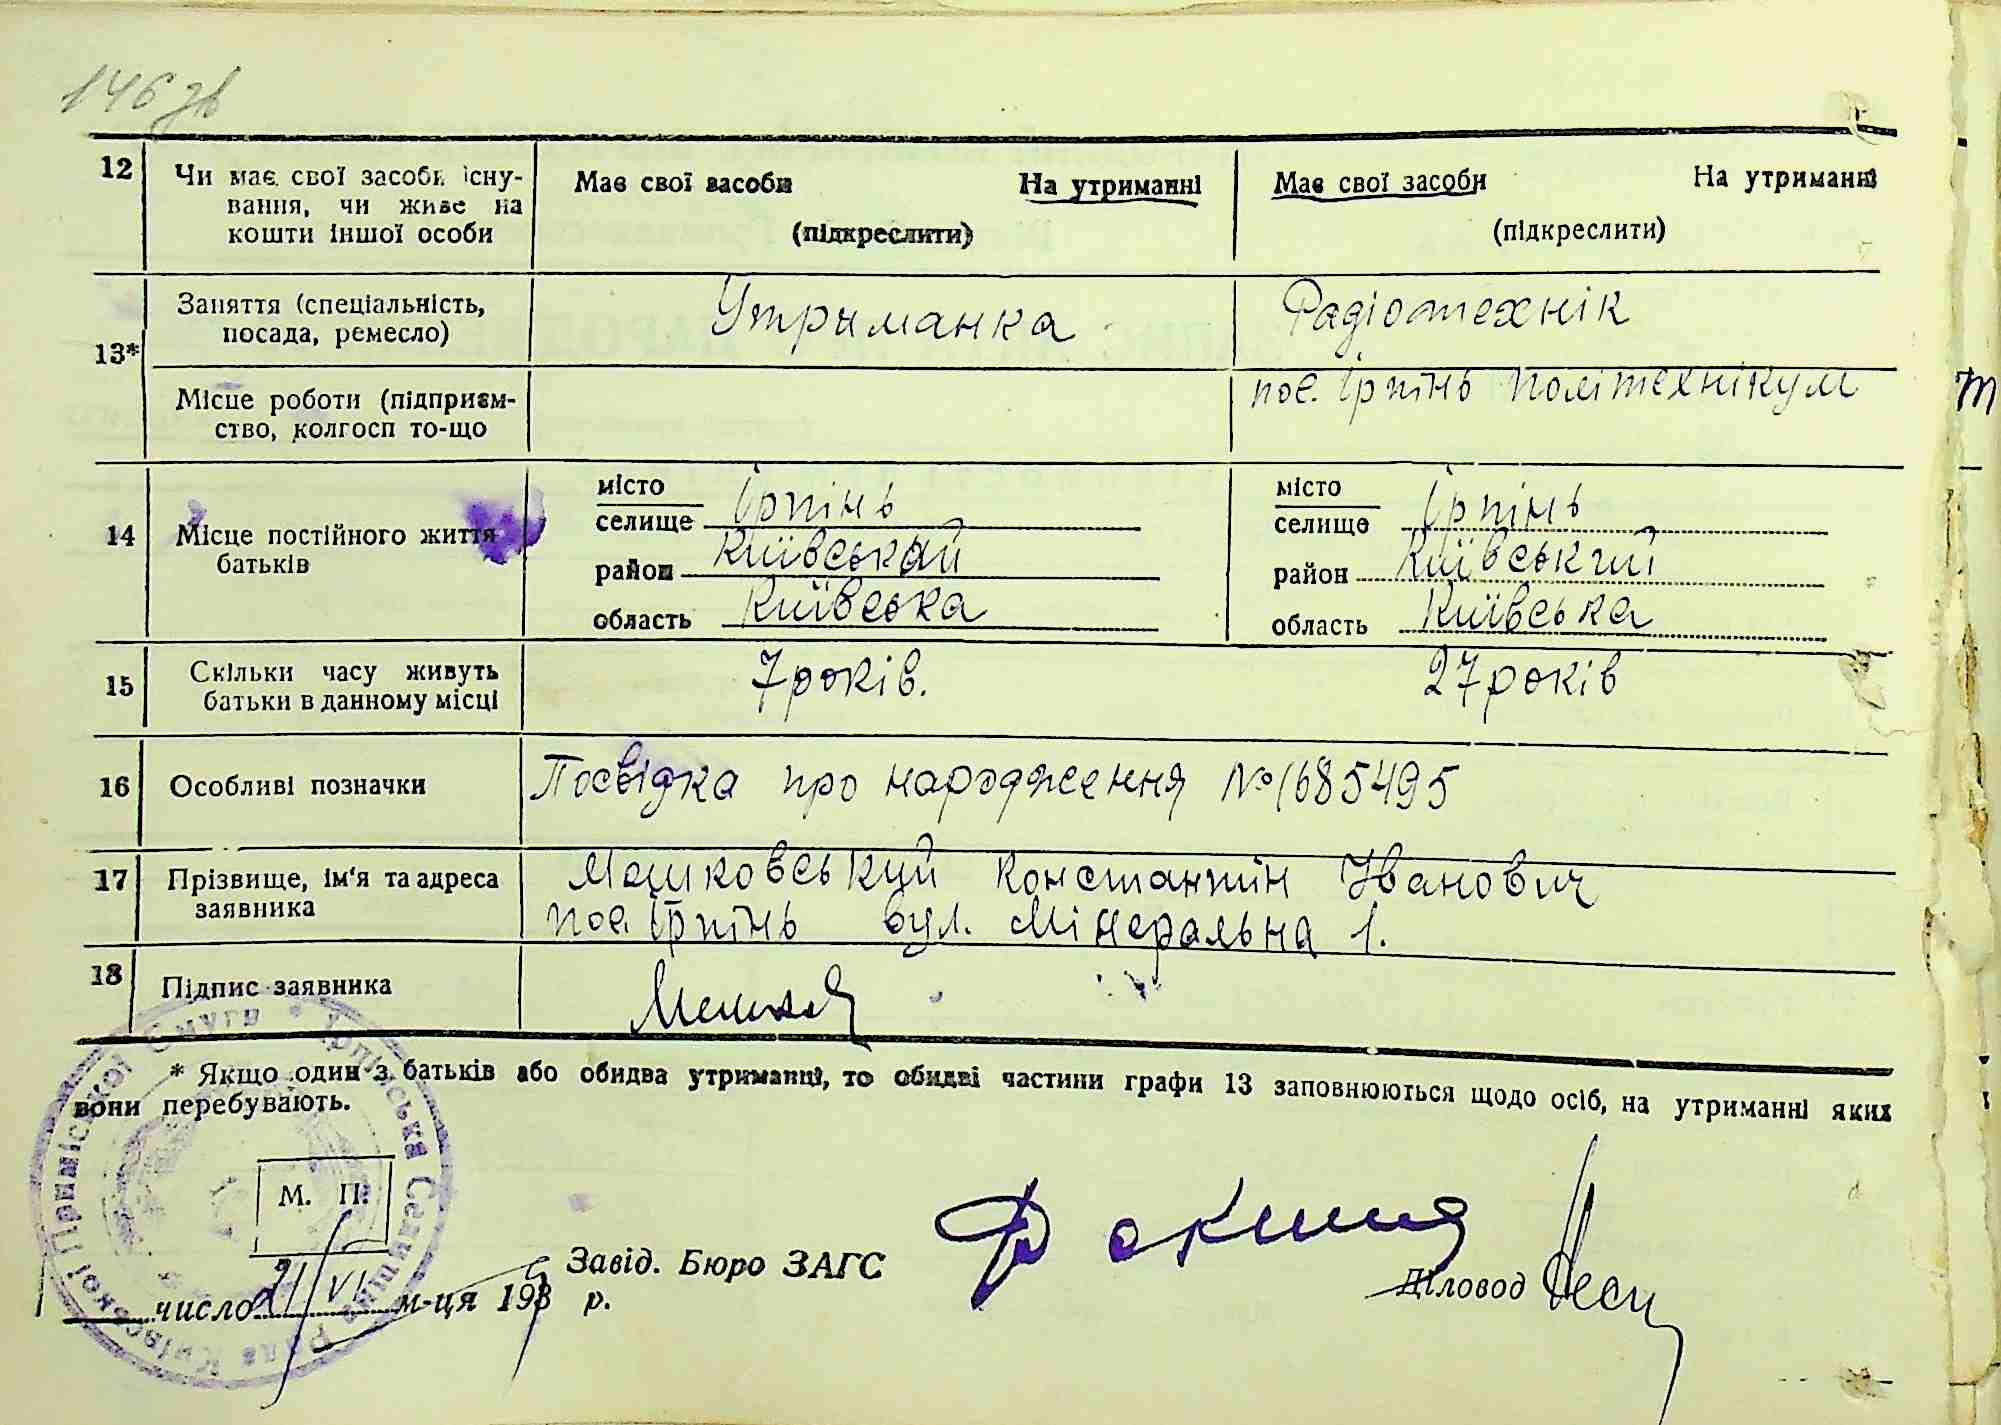 146 зв
12 Чи має свої засоби існу-
вання, чи живе на
кошти іншої особи
Має свої засоби На утриманні
(підкреслити)
Має свої засоби На утриманні
(підкреслити)
13* Заняття (спеціальність,
посада, ремесло)
Утриманка
Радіотехнік
Місце роботи (підприєм-
ство, колгосп то-що
пос. Ірпінь Політехнікум
14 Місце постійного життя
батьків
місто
селище Ірпінь
район Київський
область Київська
місто
селище Ірпінь
район Київський
область Київська
15 Скільки часу живуть
батьки в данному місці
7 років.
27 років
16 Особливі позначки
Посвідка про народження № 1685495
17 Прізвище, ім'я та адреса
заявника
Мошковський Константін Іванович
пос. Ірпінь вул. Мінеральна 1.
18 Підпис заявника
* Якщо один з батьків або обидва утриманці, то обидві частини графи 13 заповнюються щодо осіб, на утриманні яких
вони перебувають.
Ірпінська Селищна Рада Київської Приміської Смуги
М. П.
Завід. Бюро ЗАГС
Діловод
число 21/VI м-ця 193 р.